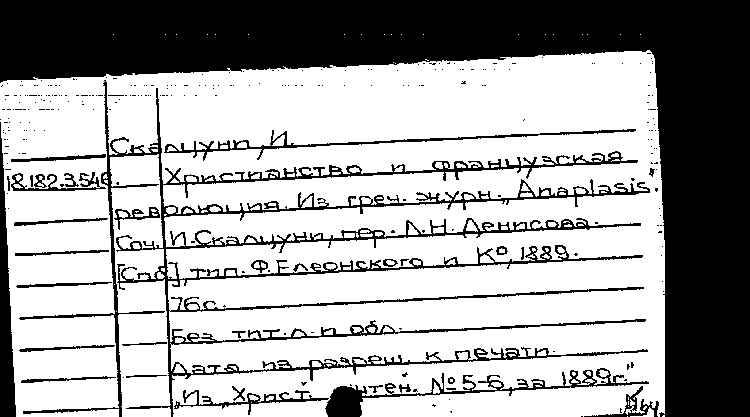 Скалцуни, И.
18.182.3.546. Христианство и французская
революция. Из греч. журн. „Anaplasis".
Соч. И. Скалцуни, пер. Л.Н. Денисова.
[Спб], тип. Ф. Елеонского и К°, 1889.
76 с.
Без тит. л. и обл.
Дата из разреш. к печати.
„Из „Христ. чтен. № 5-6, за 1889г."